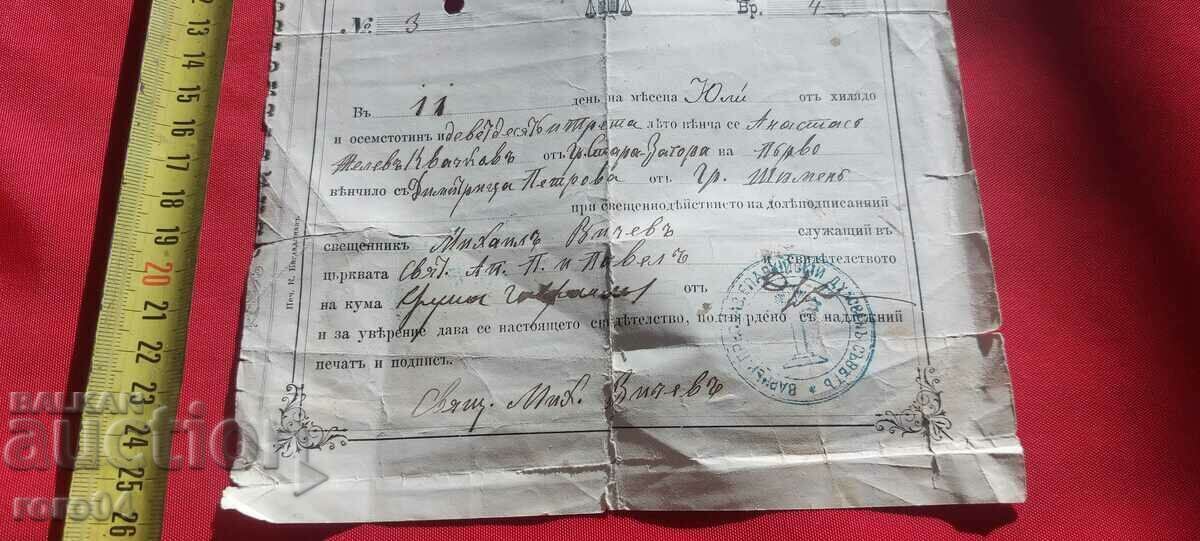 № 3 Бр. 4
Въ 11 день на мѣсеца Юли отъ хилядо
и осемстотинъ и деветдесять и трета лѣто вѣнча се Анастасъ
Желевъ Квачковъ отъ гр. Стара-Загора на първо
вѣнчило съ Димитрица Петрова отъ гр. Шуменъ
при свещенодѣйствието на долѣподписаний
свещенникъ Михаилъ Вичевъ служащий въ
църквата Свят. Ап. П. и Павелъ и свидѣтелството
на кума отъ
и за увѣрение дава се настоящето свидѣтелство, подтвърдено съ надлежний
печатъ и подпис.
Свящ. Мих. Вичевъ
ДУХОВЕНЪ СЪВѢТЪ
Печ. К.
12 13 14 15 16 17 18 19 20 21 22 23 24 25 26
BALKAN
auction
roro04